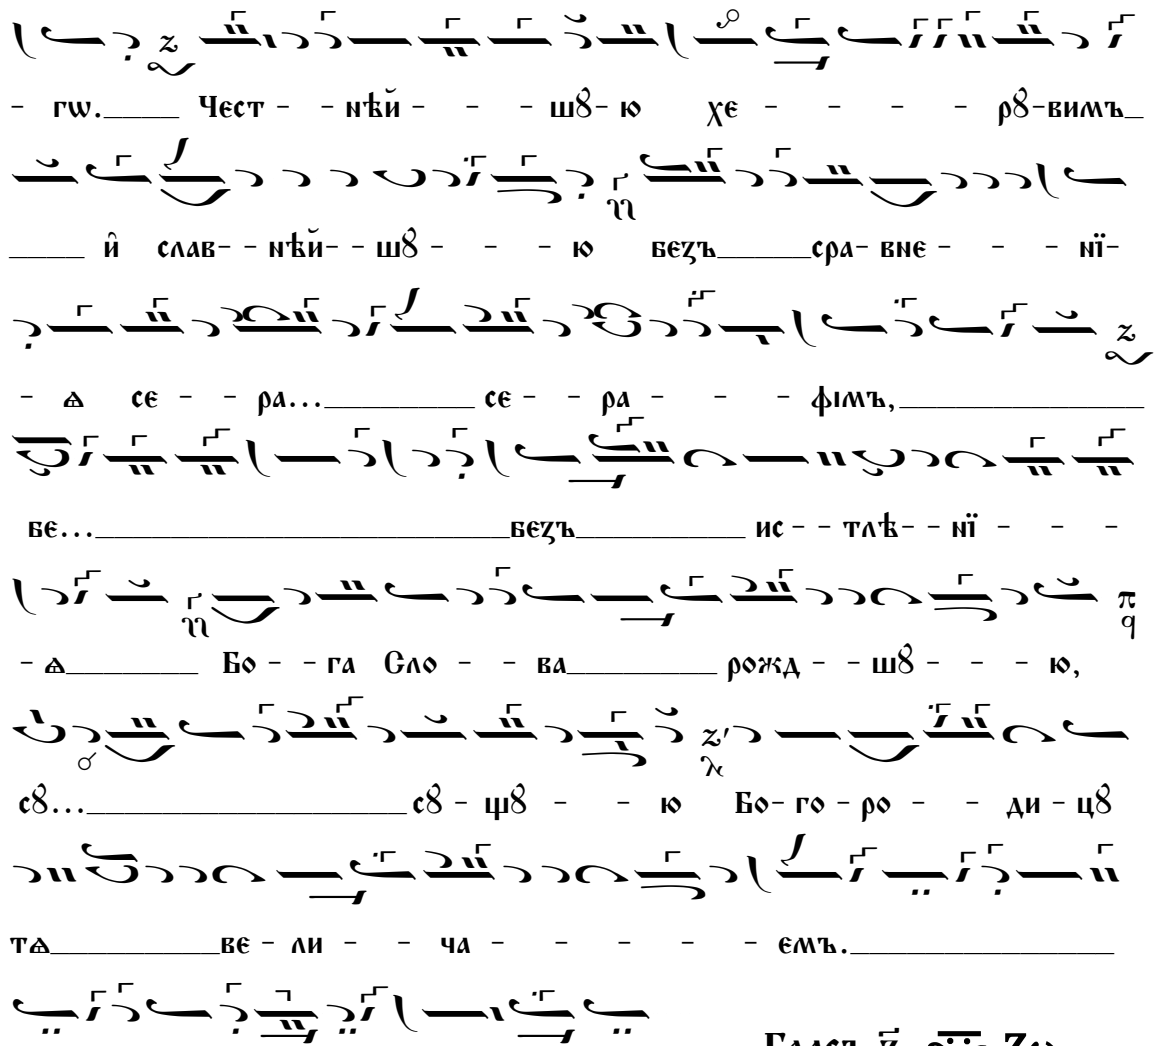 - гѡ.____ Чест - - нѣй - - - шꙋ- ю хе - - - - рꙋ-вимъ_
____ и҆ слав- - нѣй- - шꙋ - - - ю беꙁъ_____сра- вне - - - нї-
- ѧ се - - ра...________ се - - ра - - - фімъ,_____________
бе..._______________________беꙁъ_________ ис - - тлѣ- - нї - - -
- ѧ_______ Бо - - га Сло - - ва________ рожд - - шꙋ - - - ю,
сꙋ...__________________сꙋ - щꙋ - - ю Бо- го - ро - - ди - цꙋ
тѧ_________ве - ли - - ча - - - - - емъ.______________